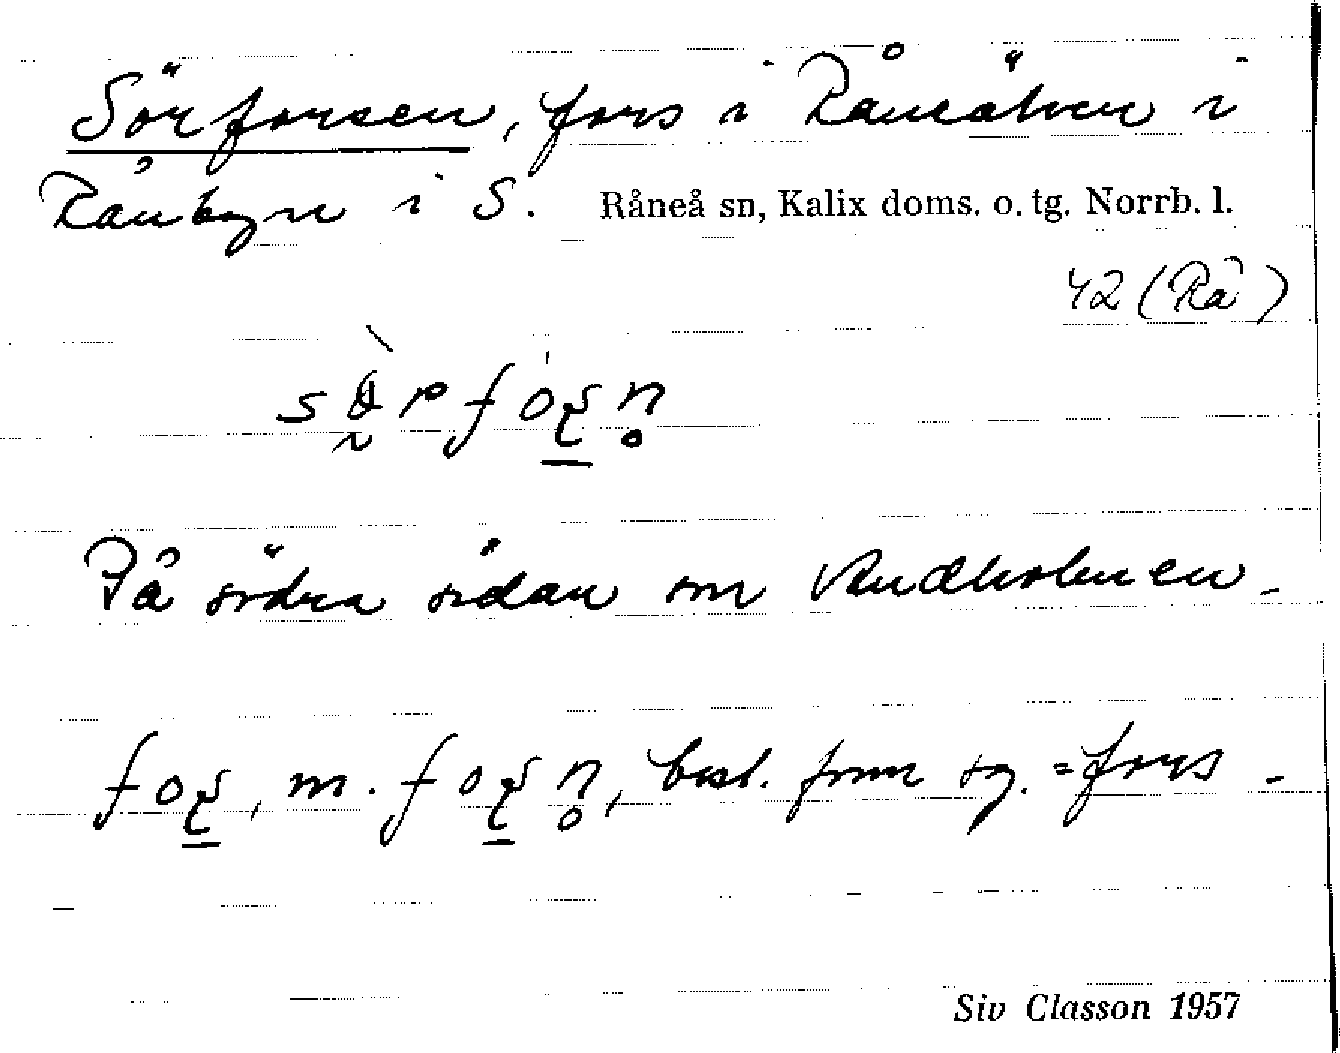 Sörforsen, fors i Råneälven i
Rånbyn i S. Råneå sn, Kalix doms. o. tg. Norrb. l.
42 (Rå)
På södra sidan om
m. best. form sg. = fors -
Siv Classon 1957